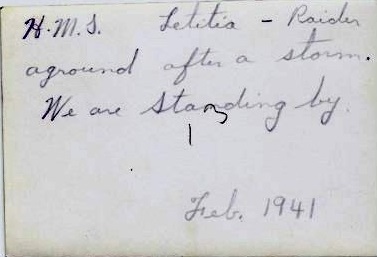 H.M.S. Letitia - Raider
aground after a storm.
We are standing by.
Feb. 1941